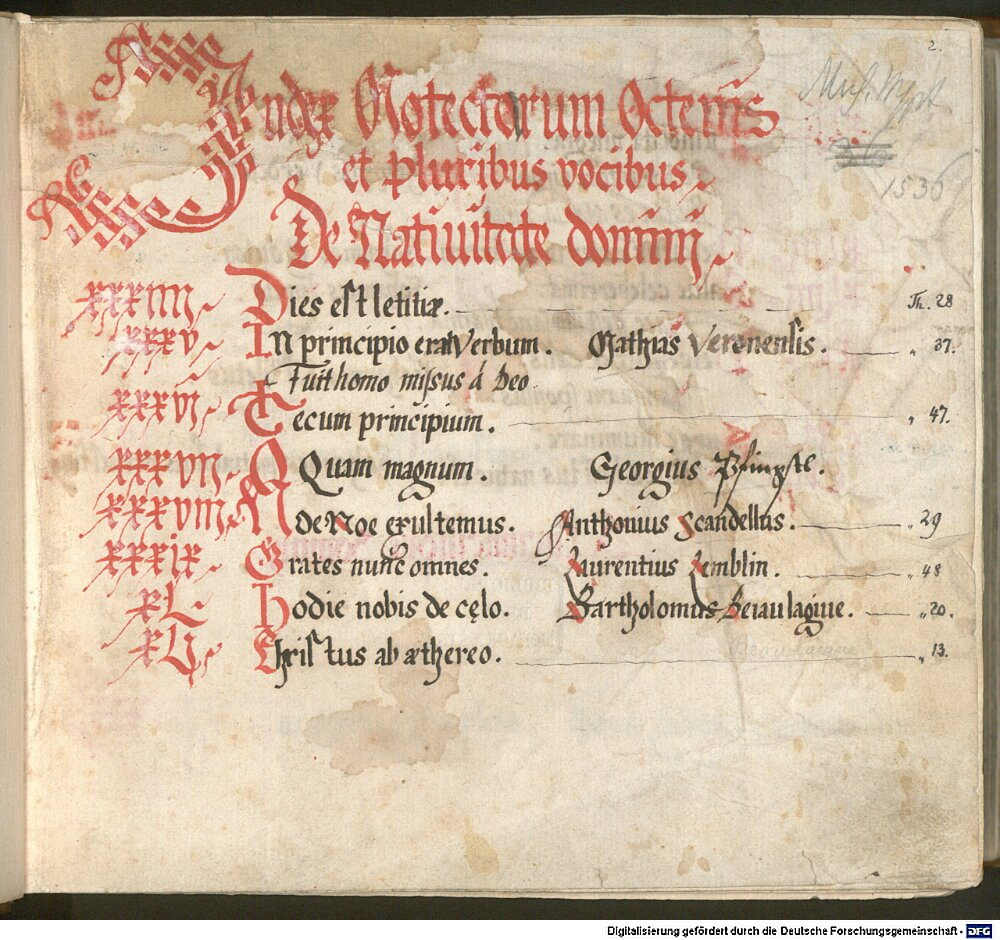 2.
Index Motectorum Octenis
et pluribus vocibus
Mus. Mspt.
1536
De Nativitate domini
xxxiiii Dies est letitiæ. Th. 28
xxxv In principio erat Verbum. Mathias Veronensis. " 37.
Fuit homo missus á deo
xxxvi Tecum principium. " 47.
xxxvii O Quam magnum. Georgius Pfingste.
xxxviii Noe Noe exultemus. Anthonius Scandellus. " 29
xxxix Grates nunc omnes. Laurentius Lemblin. " 48
xL Hodie nobis de cęlo. Bartholomus Beiaulagiue. " 20.
xLi Christus ab æthereo. " 13.
Beaulaigue
Digitalisierung gefördert durch die Deutsche Forschungsgemeinschaft - DFG